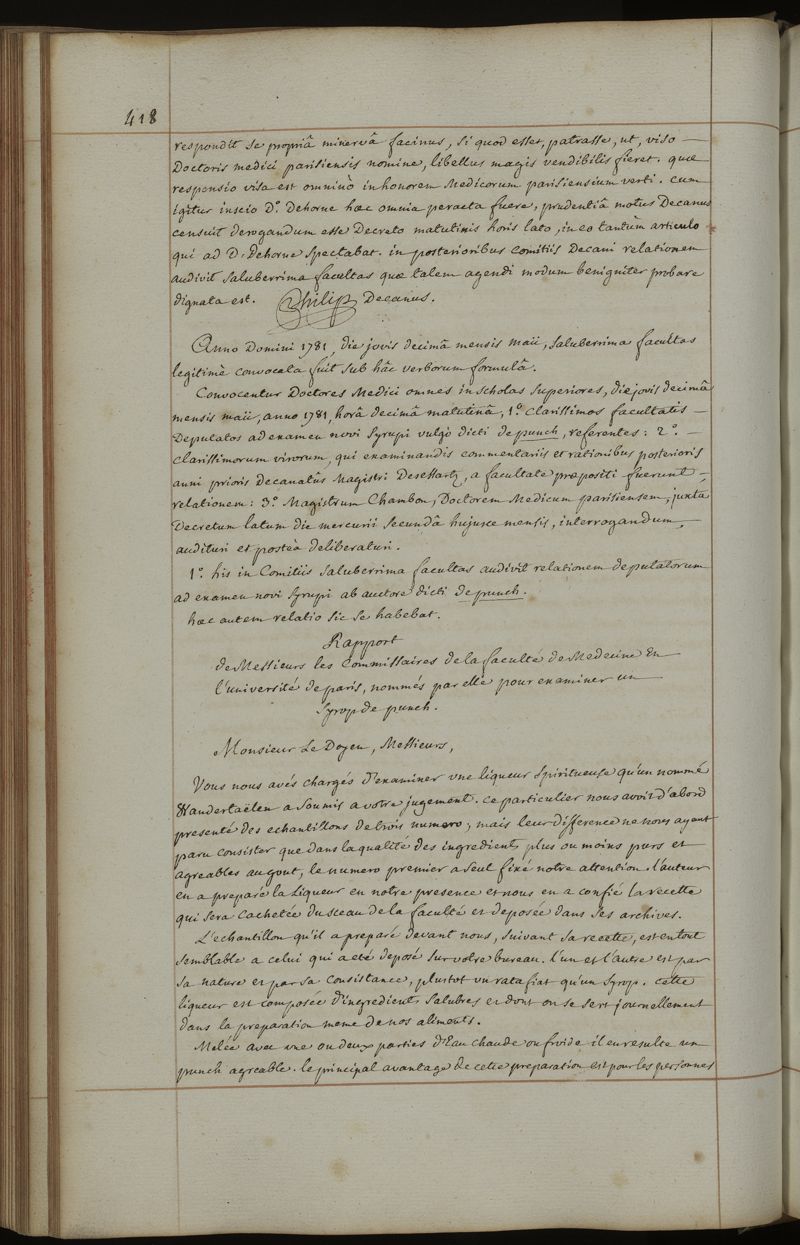 418
respondit se propriâ minervâ facinus, si quod esset, patrasse, ut, viso —
Doctoris medici parisiensis nomine, libellus magis vendibilis fieret. quæ
responsio visa est omninò in honorem Medicorum parisiensium verti. Cum
igitur inscio D.º Dehorne hæc omnia peracta fuere, prudentiâ motus Decanus
censuit derogandum esse Decreto matutinis horis lato, in eo tantùm articulo
qui ad D. Dehorne spectabat. in posterioribus comitiis Decani relationem
audivit saluberrima facultas quæ talem agendi modum benigniter probare
dignata est. Philip Decanus.
Anno Domini 1781, die jovis decimâ mensis maii, saluberrima facultas
legitimè convocata fuit sub hâc verborum formulâ.
Convocentur Doctores Medici omnes in scholas superiores, die jovis decimâ
mensis maii, anno 1781, horâ decimâ matutinâ, 1.º Clarissimos facultatis —
Deputatos ad examen novi syrupi vulgò dicti de punch, referentes: 2.º —
Clarissimorum virorum, qui examinandis commentariis et rationibus posterioris
anni prioris Decanatûs Magistri Desessartz, a facultate præpositi fuerunt —
relationem: 3.º Magistrum Chambon, Doctorem Medicum parisiensem, juxtà
Decretum latum die mercurii secundâ hujusce mensis, interrogandum —
audituri et posteà deliberaturi.
1.º his in Comitiis saluberrima facultas audivit relationem deputatorum
ad examen novi syrupi ab auctore dicti de punch.
hæc autem relatio sic se habebat.
Rapport
de Messieurs les Commissaires de la faculté de Medecine en
l'université de paris, nommés par elle pour examiner un —
syrop de punch.
Monsieur Le Doyen, Messieurs,
Vous nous avés chargés d'examiner une liqueur spiritueuse qu'un nommé
Wandertaëlen a soumis a votre jugement. ce particulier nous avoit d'abord
presenté des echantillons de trois numero; mais leur difference ne nous ayant
paru consister que dans la qualité des ingredients plus ou moins purs et
agreables au gout, le numero premier a seul fixé notre attention. l'auteur
en a preparé la liqueur en notre presence et nous en a confié la recette
qui sera cachetée du sceau de la faculté et deposée dans ses archives.
L'echantillon qu'il a preparé devant nous, suivant sa recette, est en tout
semblable a celui qui a eté deposé sur votre bureau. l'un et l'autre est par
sa nature et par sa consistance, plustot un ratafiat qu'un syrop. cette
liqueur est composée d'ingredients salubres et dont on se sert journellement
dans la preparation meme de nos aliments.
Melée avec une ou deux parties d'Eau chaude ou froide il en resulte un
punch agreable. le principal avantage de cette preparation est pour les personnes